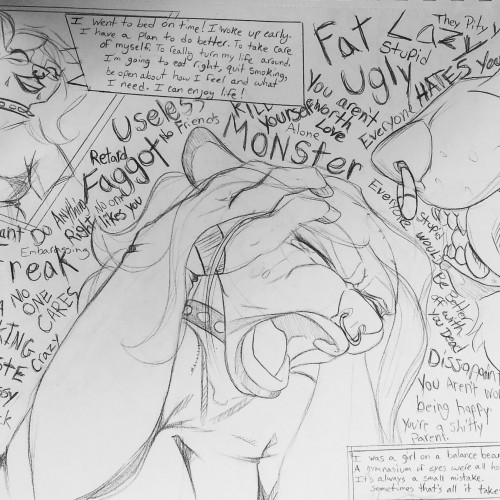 I went to bed on time! I woke up early.
I have a plan to do better. To take care
of myself. To really turn my life around.
I'm going to eat right, quit smoking,
be open about how I feel and what
I need. I can enjoy life!
Fat
Lazy
They Pity
Stupid
Ugly
HATES You
You aren't
worth
Love
Everyone
Useless
No Friends
KILL
Yourself
Alone
MONSTER
Retard
Faggot
No one
likes you
Do Anything
Right
Embarrassing
Freak
NO ONE
CARES
Crazy
Stupid
Everyone would be better
off with
you Dead
You Aren't
being happy
You're a shitty
Parent.
I was a girl on a balance
A gymnasium of eyes were all
It's always a small mistake.
Sometimes that's all it takes